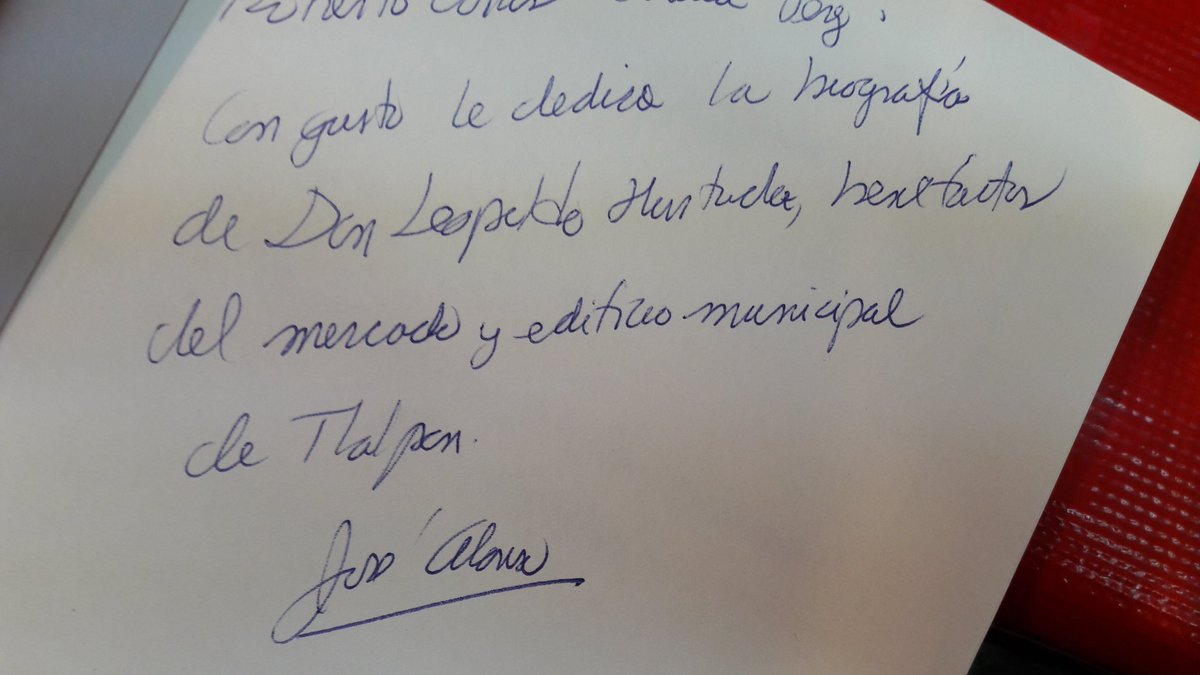 Roberto
Con gusto le dedico la biografía
de Don Leopoldo Hurtado, benefactor
del mercado y edificio municipal
de Tlalpan.
José